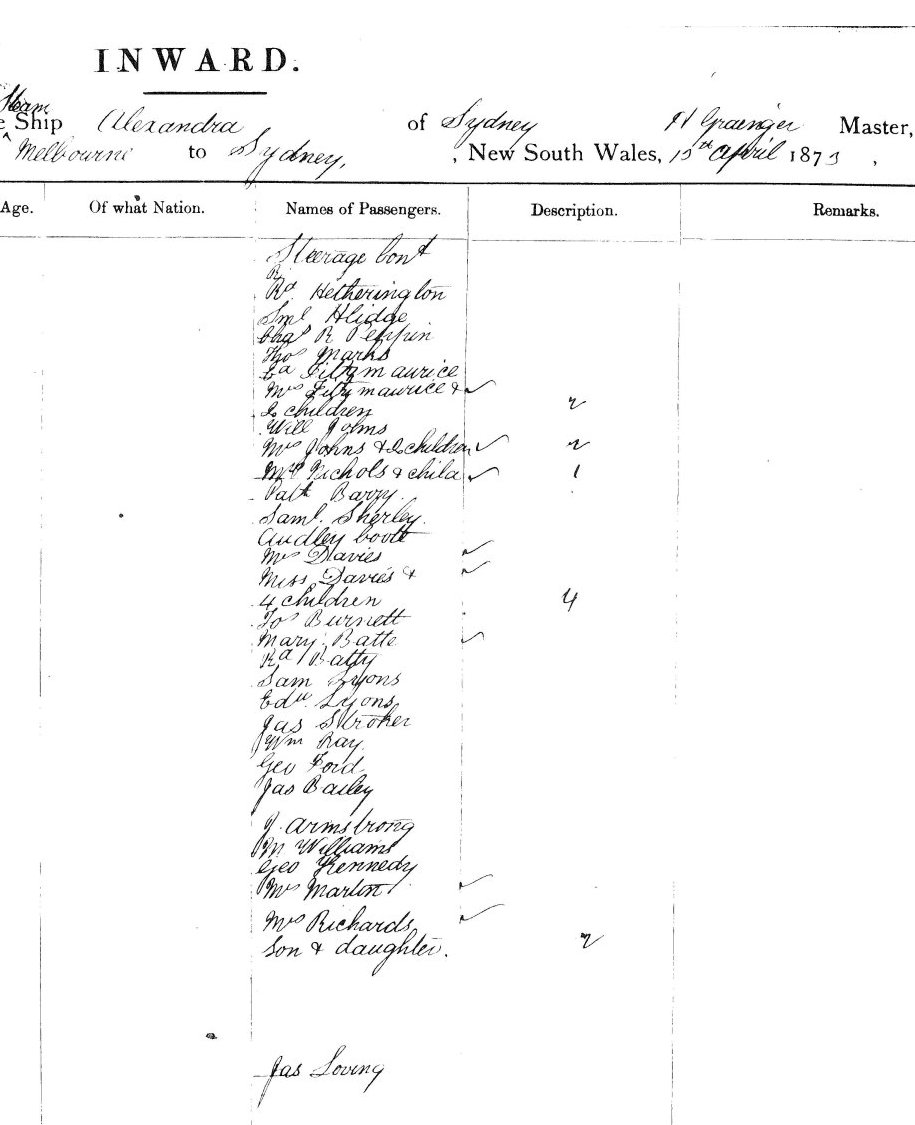 INWARD.
Steam
e Ship Alexandra of Sydney H Grainger Master,
Melbourne to Sydney, , New South Wales, 15th April 1873,
Age. Of what Nation. Names of Passengers. Description. Remarks.
Steerage Cont
Rd Hetherington
Saml
Chas R Peppin
Thos Marks
Ed Fitzmaurice
Mrs Fitzmaurice &
2 children 2
Will Johns
Mrs Johns & 2 children 2
Mrs Nichols & child 1
Patk Barry
Saml. Sherley
Audley Coote
Mrs Davies
Miss Davies &
4 children 4
Jos Burnett
Mary Batte
Rd Batty
Sam Lyons
Edw Lyons
Jas Stroker
Wm Ray
Geo Ford
Jas Bailey
J. Armstrong
M Williams
Geo Kennedy
Mrs Martin
Mrs Richards
Son & daughter. 2
Jas Loving